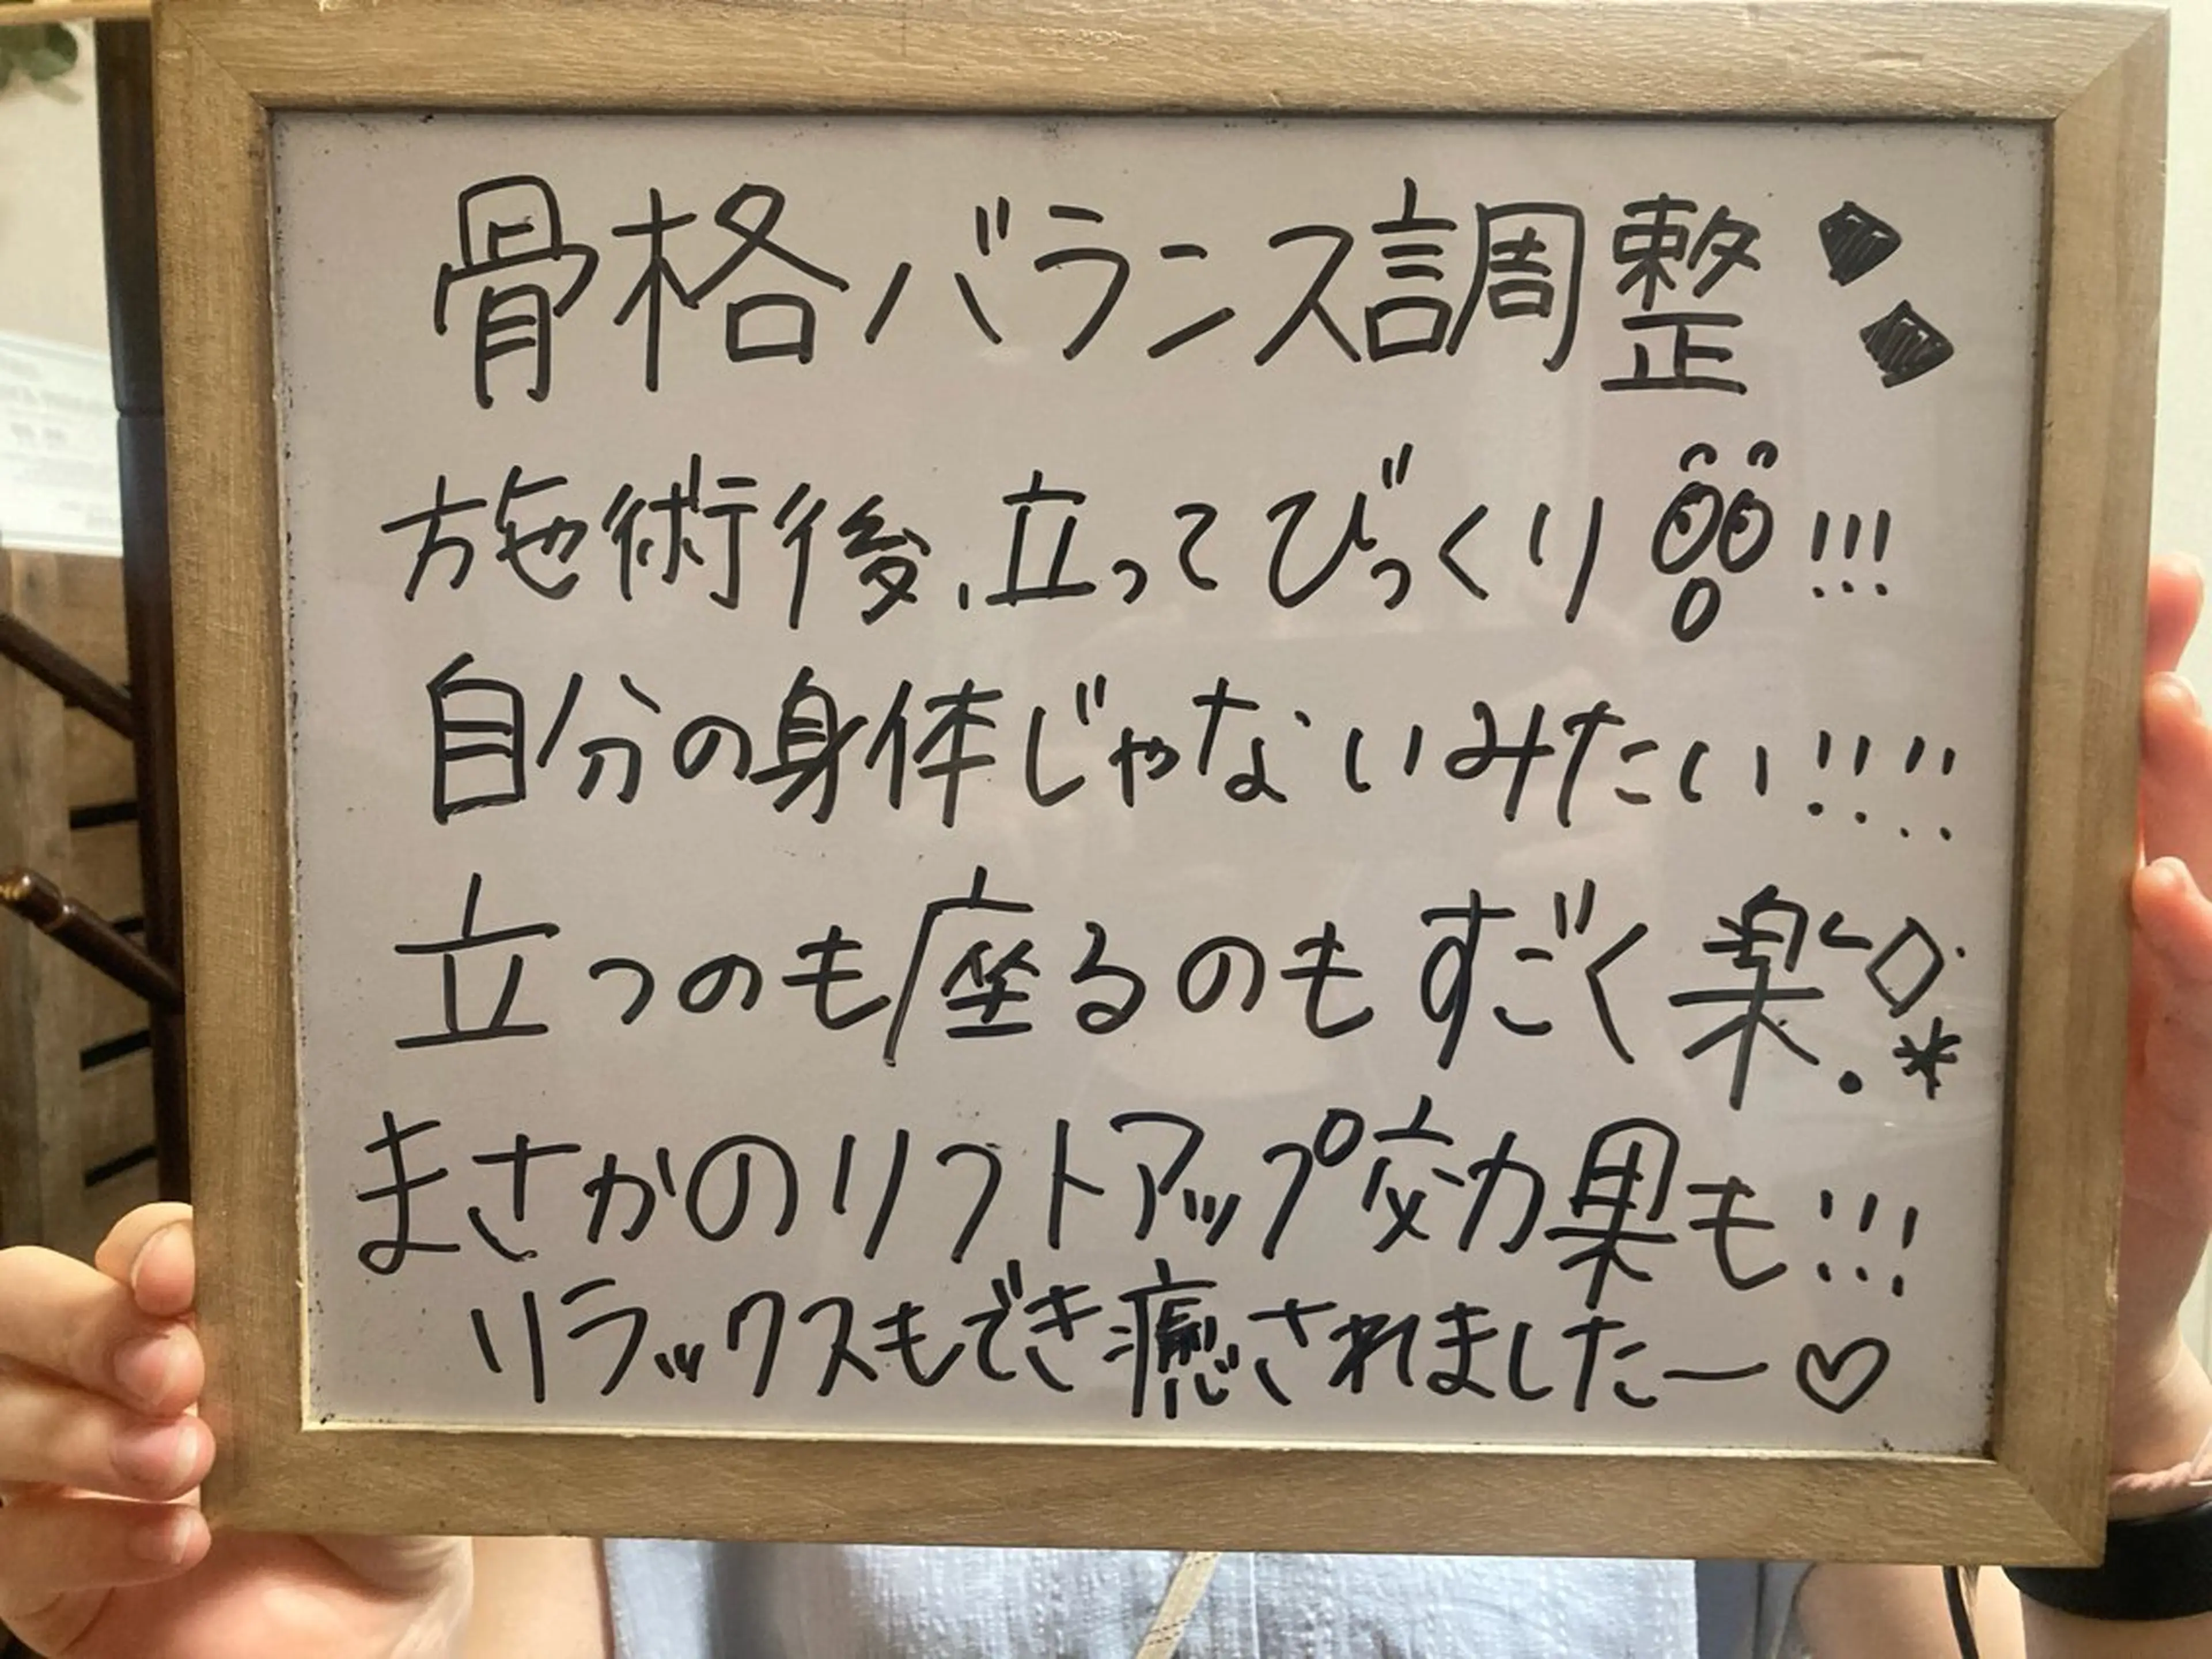 骨格バランス調整
施術後、立ってびっくり!!!
自分の身体じゃないみたい!!!!
立つのも座るのもすごく楽
まさかのリフトアップ効果も!!!
リラックスもでき癒されましたー♡